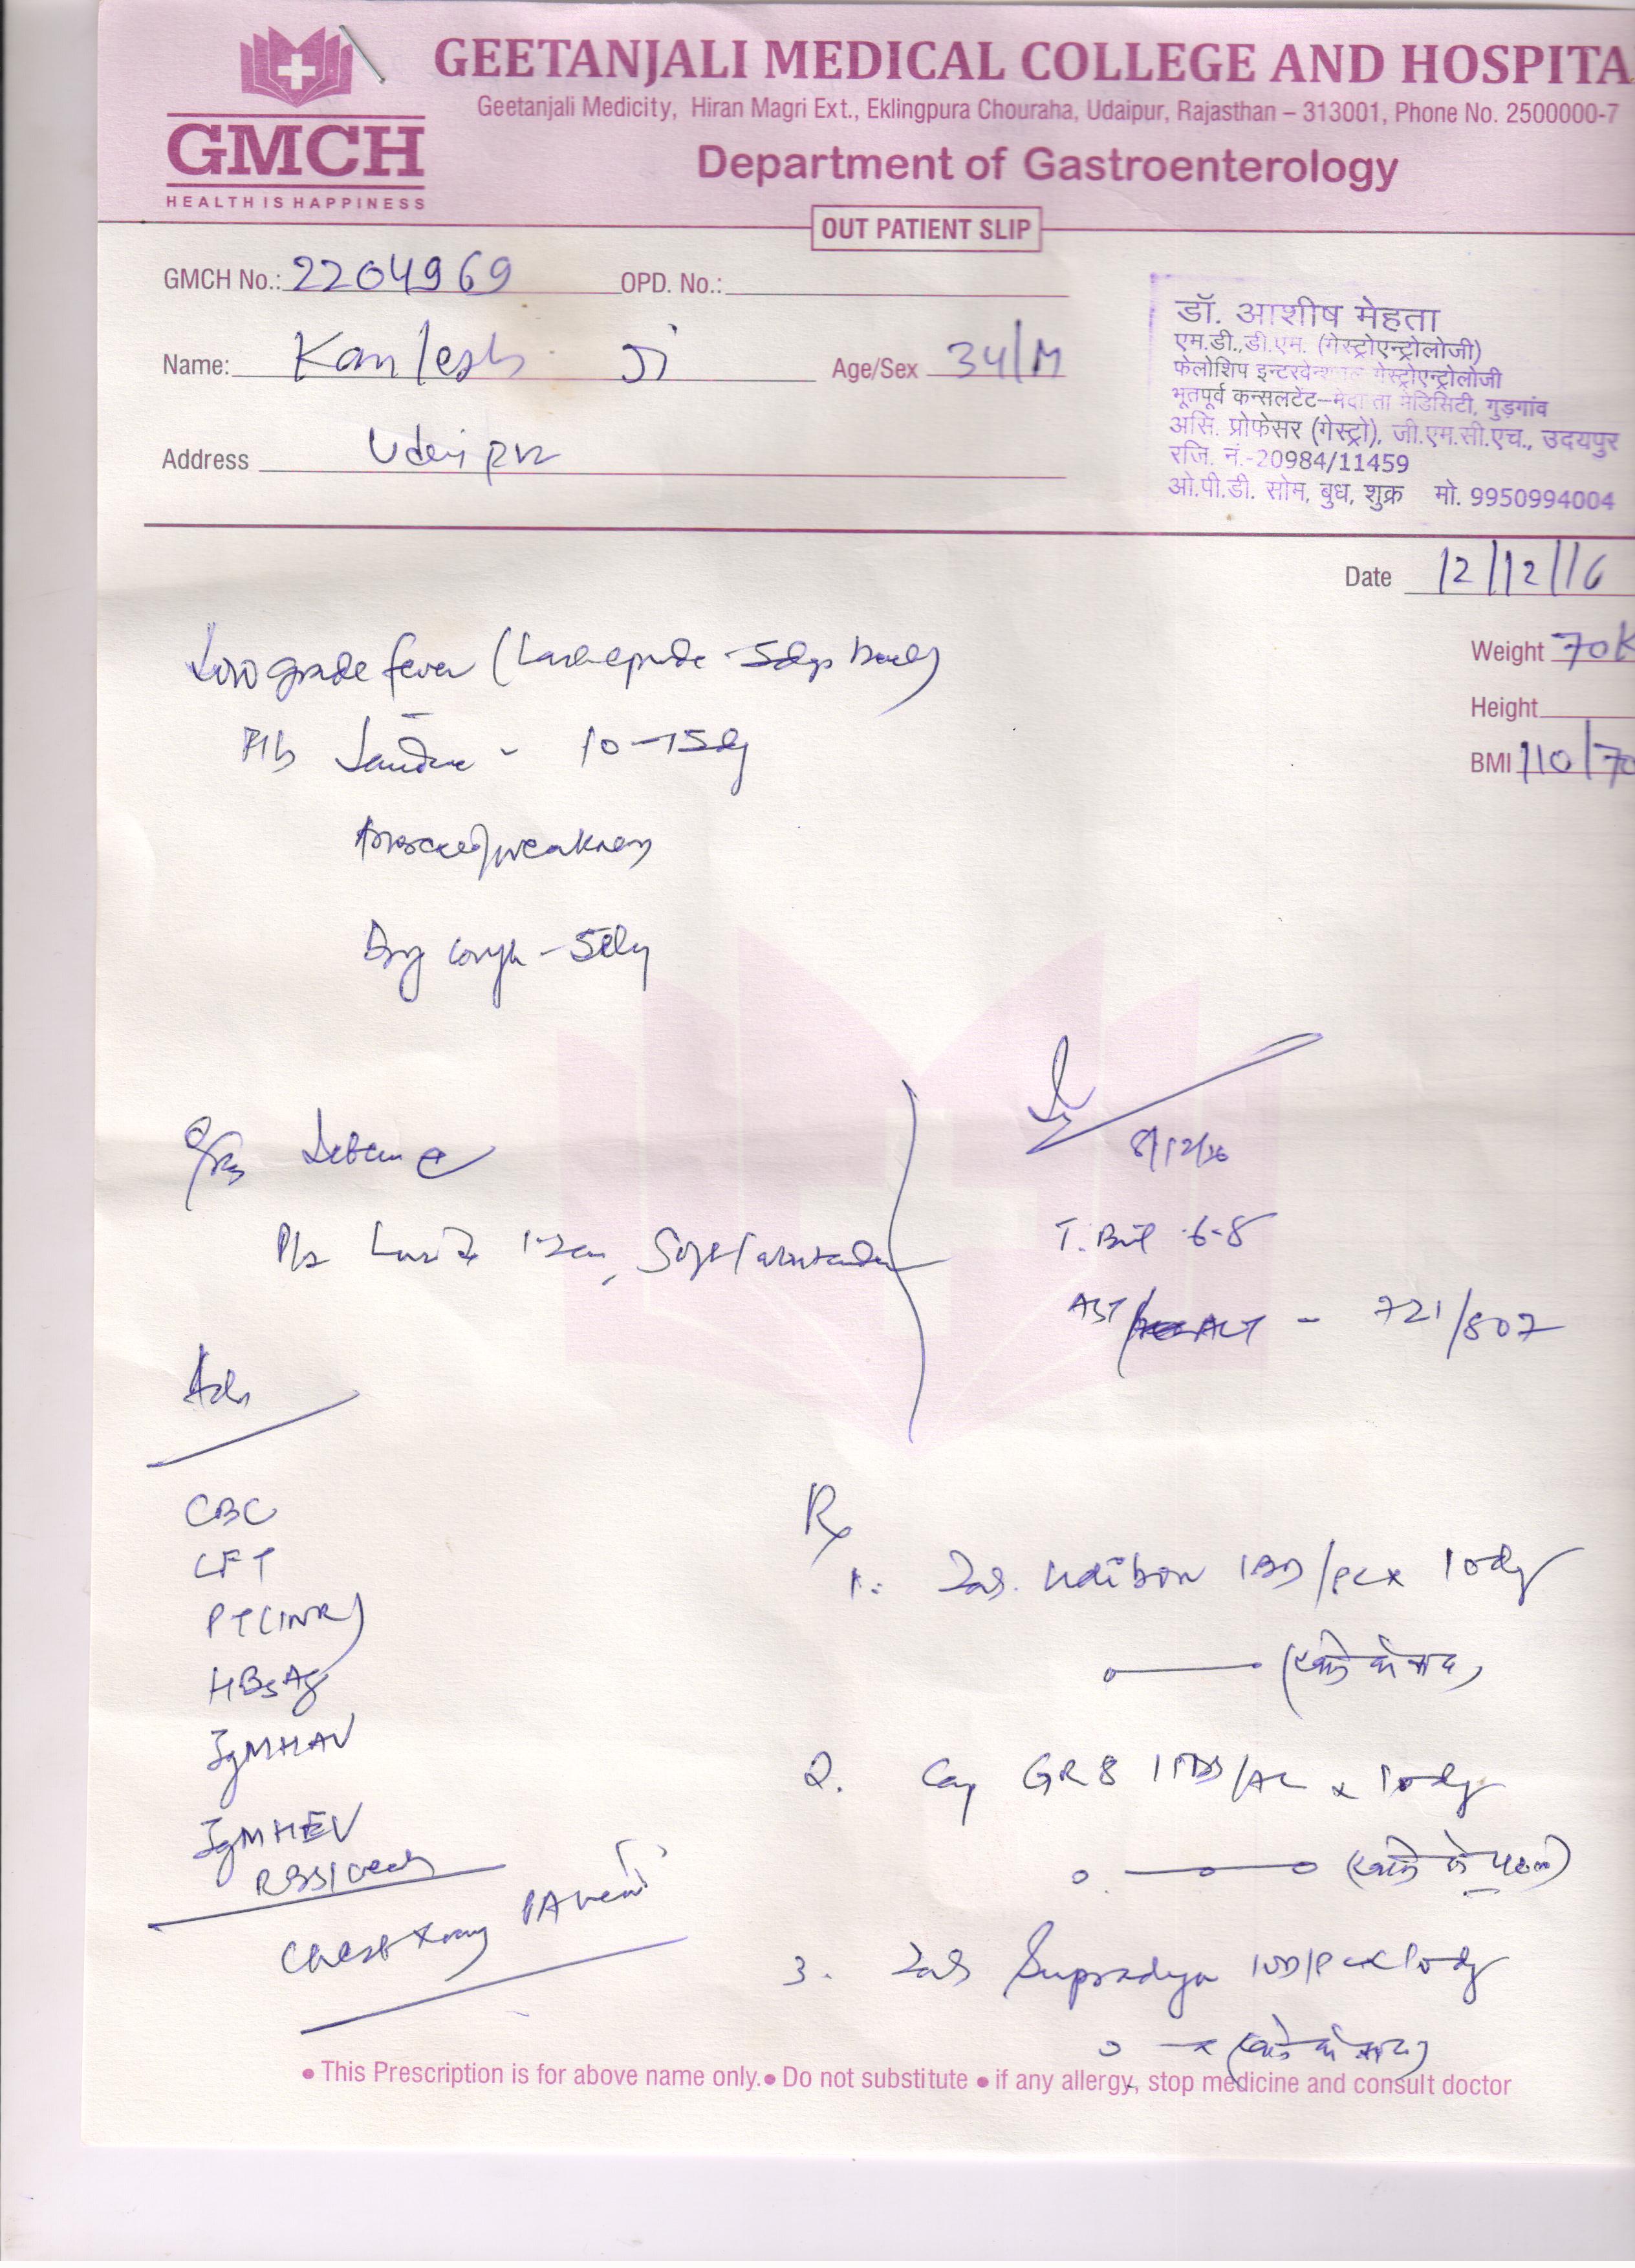 GEETANJALI MEDICAL COLLEGE AND HOSPITA
Geetanjali Medicity, Hiran Magri Ext., Eklingpura Chouraha, Udaipur, Rajasthan – 313001, Phone No. 2500000-7
GMCH
HEALTH IS HAPPINESS
Department of Gastroenterology
OUT PATIENT SLIP
GMCH No.: 2204969 OPD. No.:
Name: Kamlesh Ji Age/Sex 34/M
Address Udaipur
डॉ. आशीष मेहता
एम.डी.,डी.एम. (गेस्ट्रोएन्ट्रोलोजी)
फेलोशिप इन्टरवेन्शनल गेस्ट्रोएन्ट्रोलोजी
भूतपूर्व कन्सलटेंट–मेदान्ता मेडिसिटी, गुड़गांव
असि. प्रोफेसर (गेस्ट्रो), जी.एम.सी.एच., उदयपुर
रजि. नं.-20984/11459
ओ.पी.डी. सोम, बुध, शुक्र मो. 9950994004
Date 12/12/16
Weight 70K
Height
BMI 110/70
Low grade fever (Last episode - 5days back)
Jaundice - 10-15dy
weakness
Dry cough - 5dy
Icterus
P/A Liver
8/12/16
T. Bil 6.8
AST/ALT - 721/807
Adv
CBC
LFT
PT(INR)
HBsAg
IgMHAV
IgMHEV
Chest Xray PA view
Rx
1. Tab. Udibon 1BD/PC x 10dy
(खाने के बाद)
2. Cap GR8 1TDS/AC x 10dy
(खाने से पहले)
3. Tab Supradyn 1OD/PC x 10dy
(खाने के बाद)
• This Prescription is for above name only.• Do not substitute • if any allergy, stop medicine and consult doctor